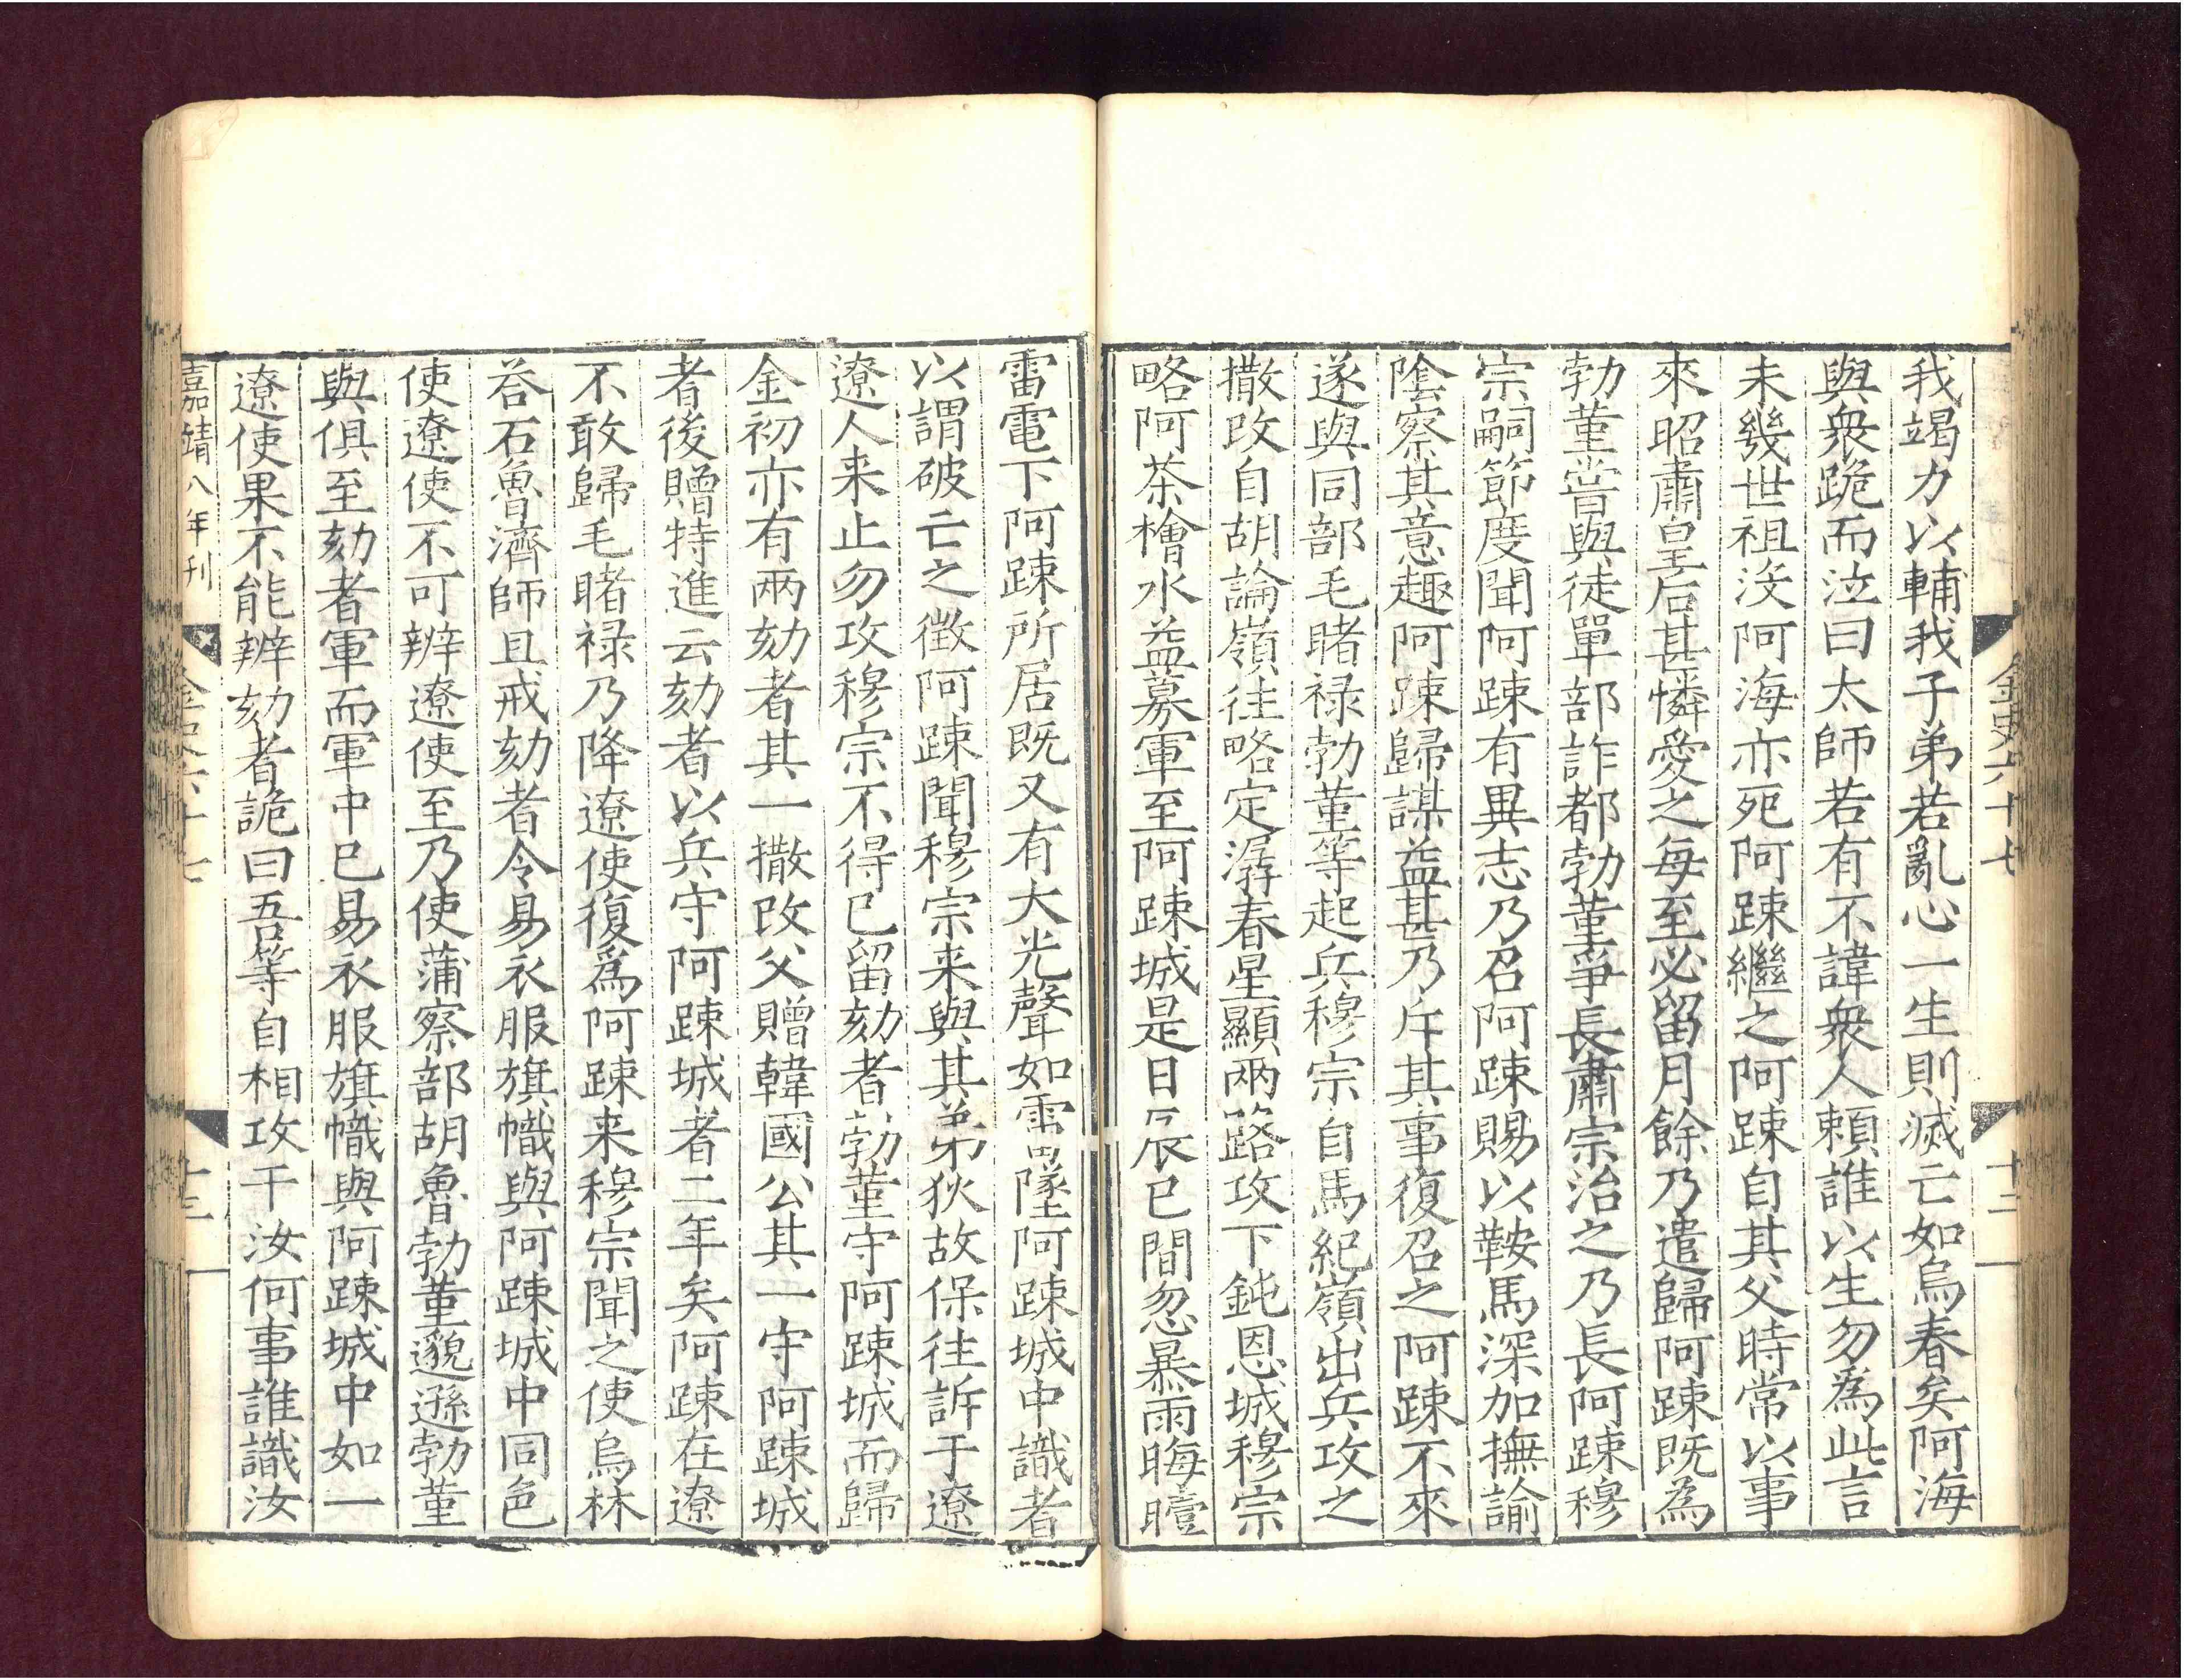 我竭力以輔我子弟若亂心一生則滅亡如烏春矣阿海
與衆跪而泣曰太師若有不諱衆人頼誰以生勿為此言
未幾世祖没阿海亦死阿踈繼之阿踈自其父時常以事
來昭肅皇后甚憐愛之每至必留月餘乃遣歸阿踈既為
勃菫嘗與徒單部詐都勃菫爭長肅宗治之乃長阿踈穆
宗嗣節度聞阿踈有異志乃召阿踈賜以鞍馬深加撫諭
陰察其意趣阿踈歸謀益甚乃斥其事復召之阿踈不來
遂與同部毛睹禄勃菫等起兵穆宗自馬紀嶺出兵攻之
撒改自胡論嶺往略定潺春星顯兩路攻下鈍恩城穆宗
略阿茶檜水益募軍至阿踈城是日辰巳間忽暴雨晦曀
雷電下阿踈所居既又有大光聲如雷墜阿踈城中識者
以謂破亡之徴阿踈聞穆宗来與其弟狄故保往訴于遼
遼人来止勿攻穆宗不得已留劾者勃菫守阿踈城而歸
金初亦有兩劾者其一撒改父贈韓國公其一守阿踈城
者後贈特進云劾者以兵守阿踈城者二年矣阿踈在遼
不敢歸毛睹禄乃降遼使復爲阿踈来穆宗聞之使烏林
荅石魯濟師且戒劾者令易衣服旗幟與阿踈城中同色
使遼使不可辨遼使至乃使蒲察部胡魯勃菫邈遜勃菫
與俱至劾者軍而軍中已易衣服旗幟與阿踈城中如一
遼使果不能辨劾者詭曰吾等自相攻干汝何事誰識汝
嘉靖八年刊
金史六十七
十二
金史六十七
十三